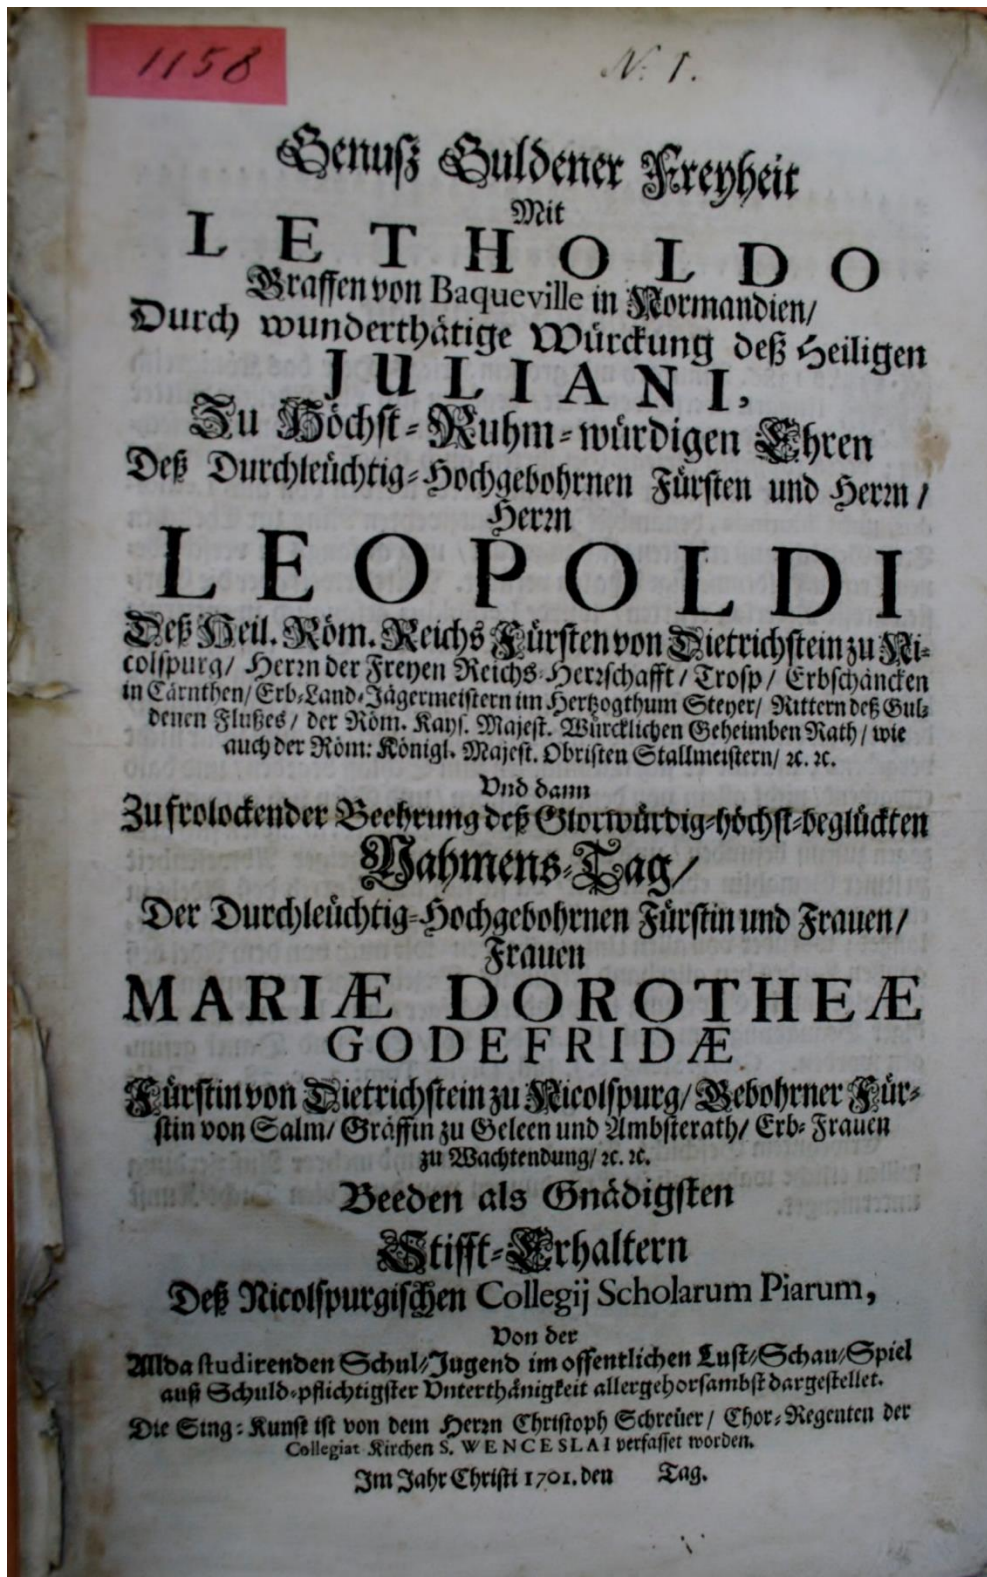 1158
N. 1.
Genusz Guldener Freyheit
Mit
LETHOLDO
Graffen von Baqueville in Normandien/
Durch wunderthätige Würckung deß Heiligen
JULIANI,
Zu Höchst-Ruhm-würdigen Ehren
Deß Durchleüchtig-Hochgebohrnen Fürsten und Herrn/
Herrn
LEOPOLDI
Deß Heil. Röm. Reichs Fürsten von Dietrichstein zu Ni-
colspurg/ Herrn der Freyen Reichs-Herrschafft/ Trosp/ Erbschäncken
in Cärnthen/ Erb-Land-Jägermeistern im Hertzogthum Steyer/ Rittern deß Gul-
denen Flußes/ der Röm. Kays. Majest. Würcklichen Geheimben Rath/ wie
auch der Röm: Königl. Majest. Obristen Stallmeistern/ ꝛc. ꝛc.
Vnd dann
Zu frolockender Beehrung deß Glorwürdig-höchst-beglückten
Nahmens-Tag/
Der Durchleüchtig-Hochgebohrnen Fürstin und Frauen/
Frauen
MARIÆ DOROTHEÆ
GODEFRIDÆ
Fürstin von Dietrichstein zu Nicolspurg/ Gebohrner Für-
stin von Salm/ Gräffin zu Geleen und Ambsterath/ Erb-Frauen
zu Wachtendung/ ꝛc. ꝛc.
Beeden als Gnädigsten
Stifft-Erhaltern
Deß Nicolspurgischen Collegij Scholarum Piarum,
Von der
Allda studirenden Schul-Jugend im offentlichen Lust-Schau-Spiel
auß Schuld-pflichtigster Vnterthänigkeit allergehorsambst dargestellet.
Die Sing-Kunst ist von dem Herrn Christoph Schreüer/ Chor-Regenten der
Collegiat Kirchen S. WENCESLAI verfasset worden.
Im Jahr Christi 1701. den Tag.